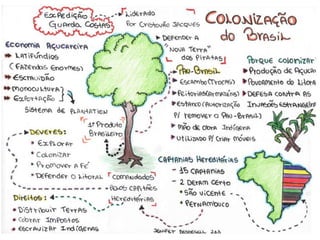 Colonização
do Brasil
Expedição
Guarda Costas
Liderado
Por Cristovão Jacques
Defender a
"Nova Terra"
dos Piratas
Economia Açucareira
Latifúndios
(Fazendas Enormes)
Escravidão
Monocultura
Exportação
Sistema de Plantation
Pau-Brasil
Escambo (Trocas)
Feitorias (Armazéns)
Estanco (Autorização
p/ remover o Pau-Brasil)
Mão de obra Indígena
Utilizado p/ criar móveis
1º Produto
Brasileiro
Porque colonizar
Produção de Açúcar
Povoamento do Litoral
Defesa contra as
Invasões Estrangeiras
Deveres:
Explorar
Colonizar
Promover a Fé
Defender o Litoral
Direitos:
Distribuir Terras
Cobrar Impostos
Escravizar Indígenas
Comandados
Pelos Capitães
Hereditários
Capitanias Hereditárias
15 Capitanias
2 Deram certo
São Vicente
Pernambuco